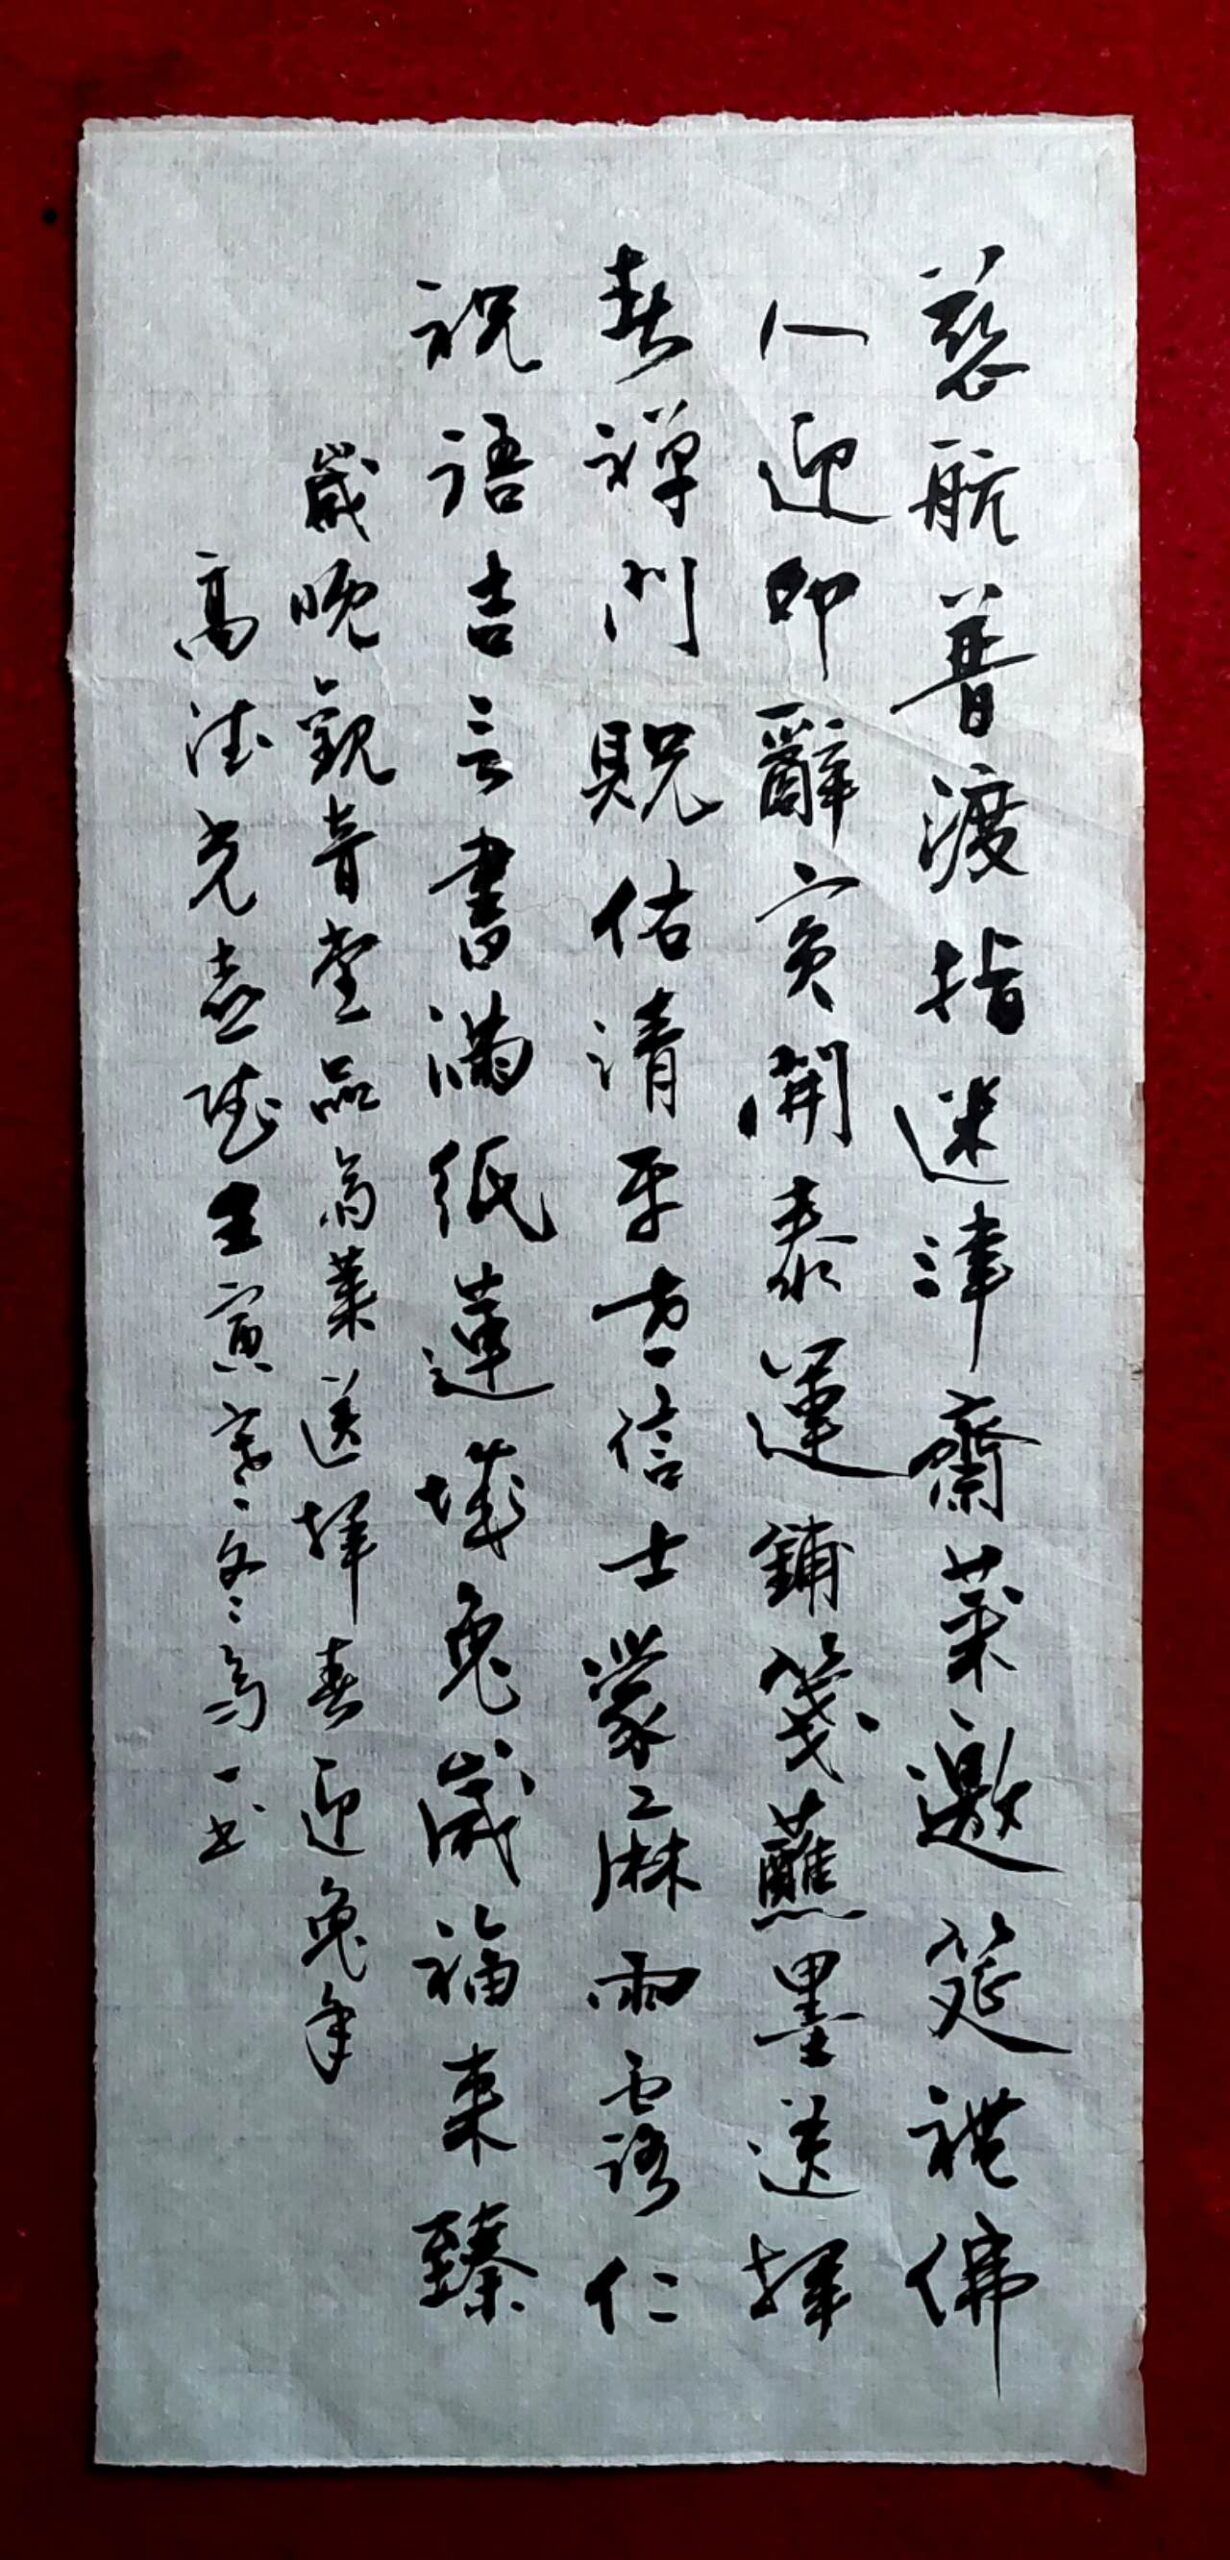 慈航普渡指迷津齋菜邀筵禮佛
人迎卯辭寅開泰運鋪箋蘸墨送揮
春禪門貺佑清平世信士蒙庥雨露仁
祝語吉言書滿紙蓮城兔歲福來臻
歲晚觀音堂品齋菜送揮春迎兔年
高德光壬寅寒冬高一書